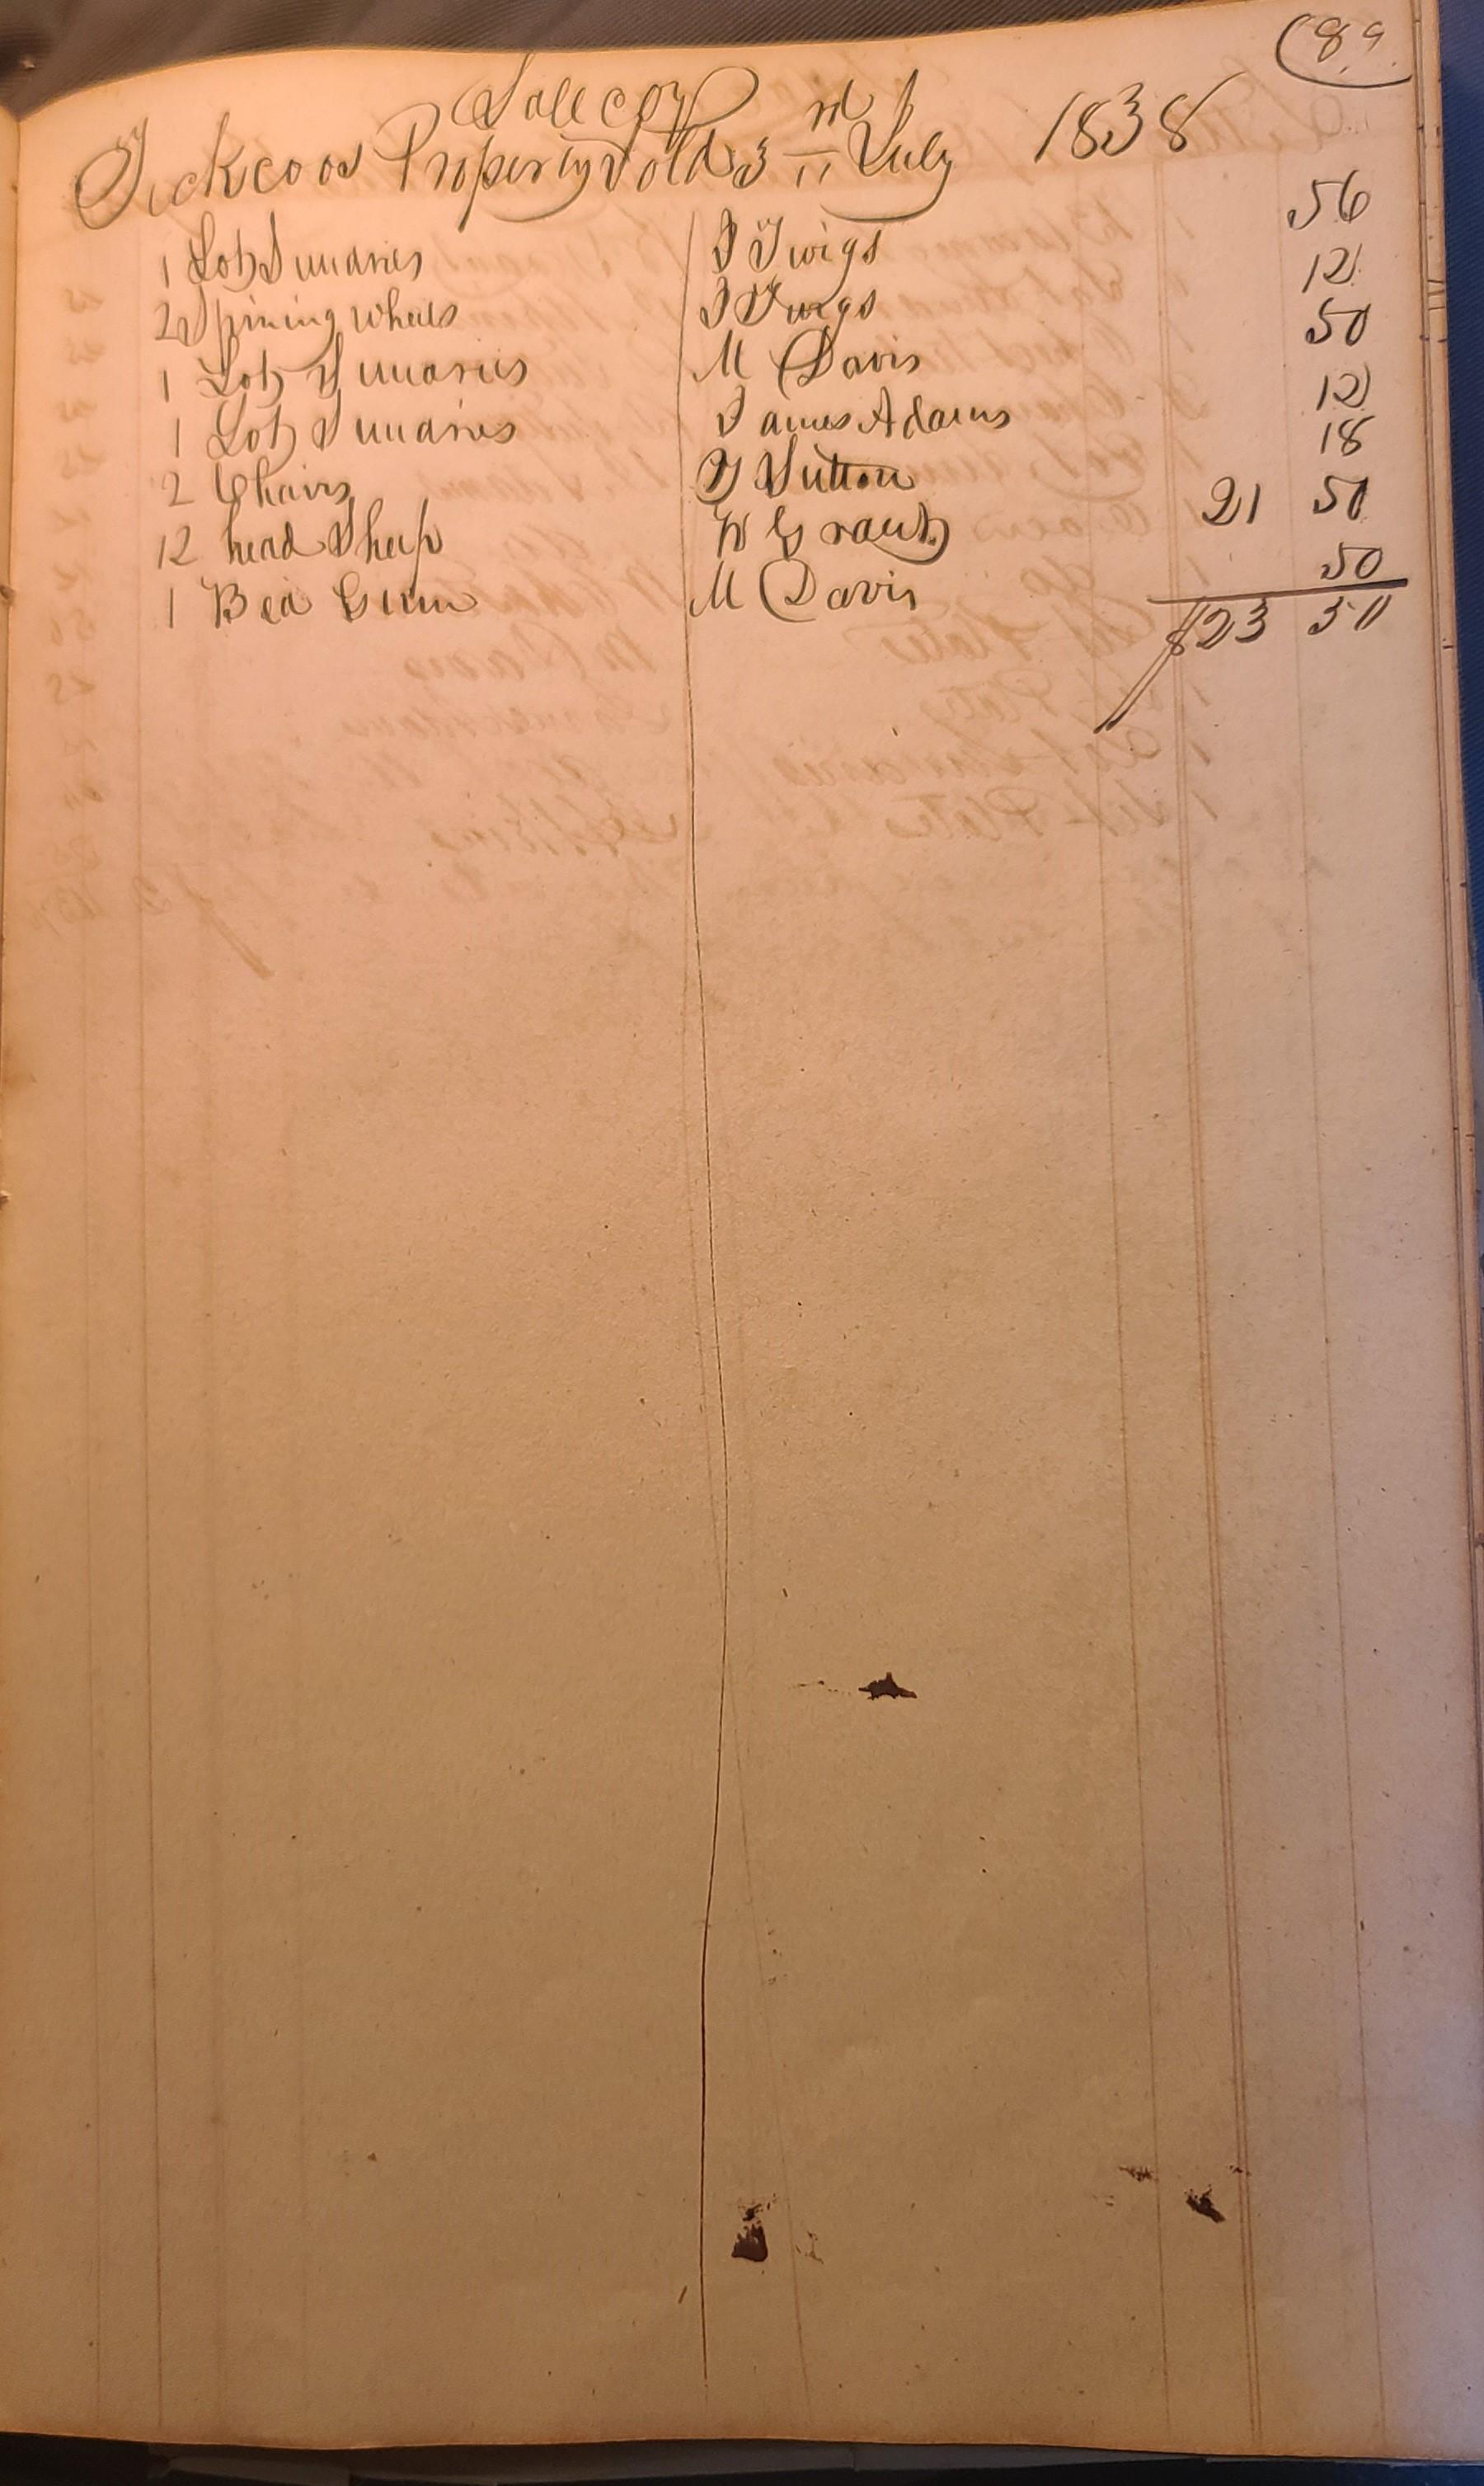 89
Sale copy
Tickcoos Property Sold 3rd July 1838
1 Lot Sundries J Twigs 56
2 Spining wheels J Twigs 12
1 Lot Sundries M Davis 50
1 Lot Sundries James Adams 12
2 Chairs Sutton 18
12 head Sheep W Grant 21 50
1 Bea Gum M Davis 50
$23 50